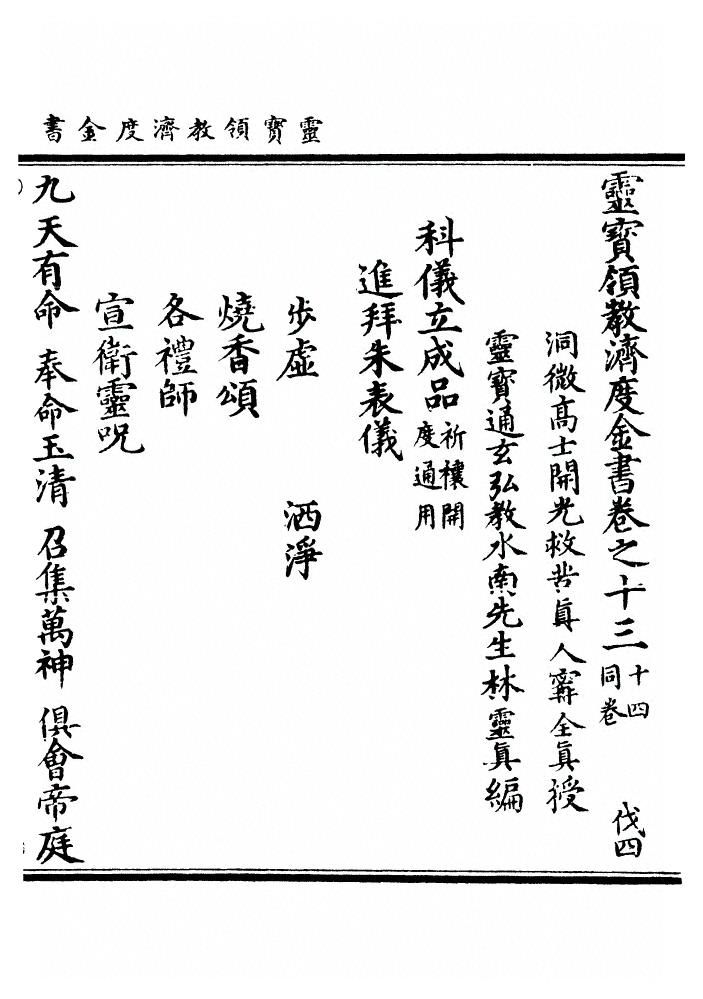 靈寶領教濟度金書
靈寶領教濟度金書卷之十三 十四同卷 伐四
洞微高士開光救苦眞人甯全眞授
靈寶通玄弘教水南先生林靈眞編
科儀立成品 祈禳開度通用
進拜朱表儀
步虛 洒淨
燒香頌
各禮師
宣衛靈呪
九天有命 奉命玉清 召集萬神 俱會帝庭